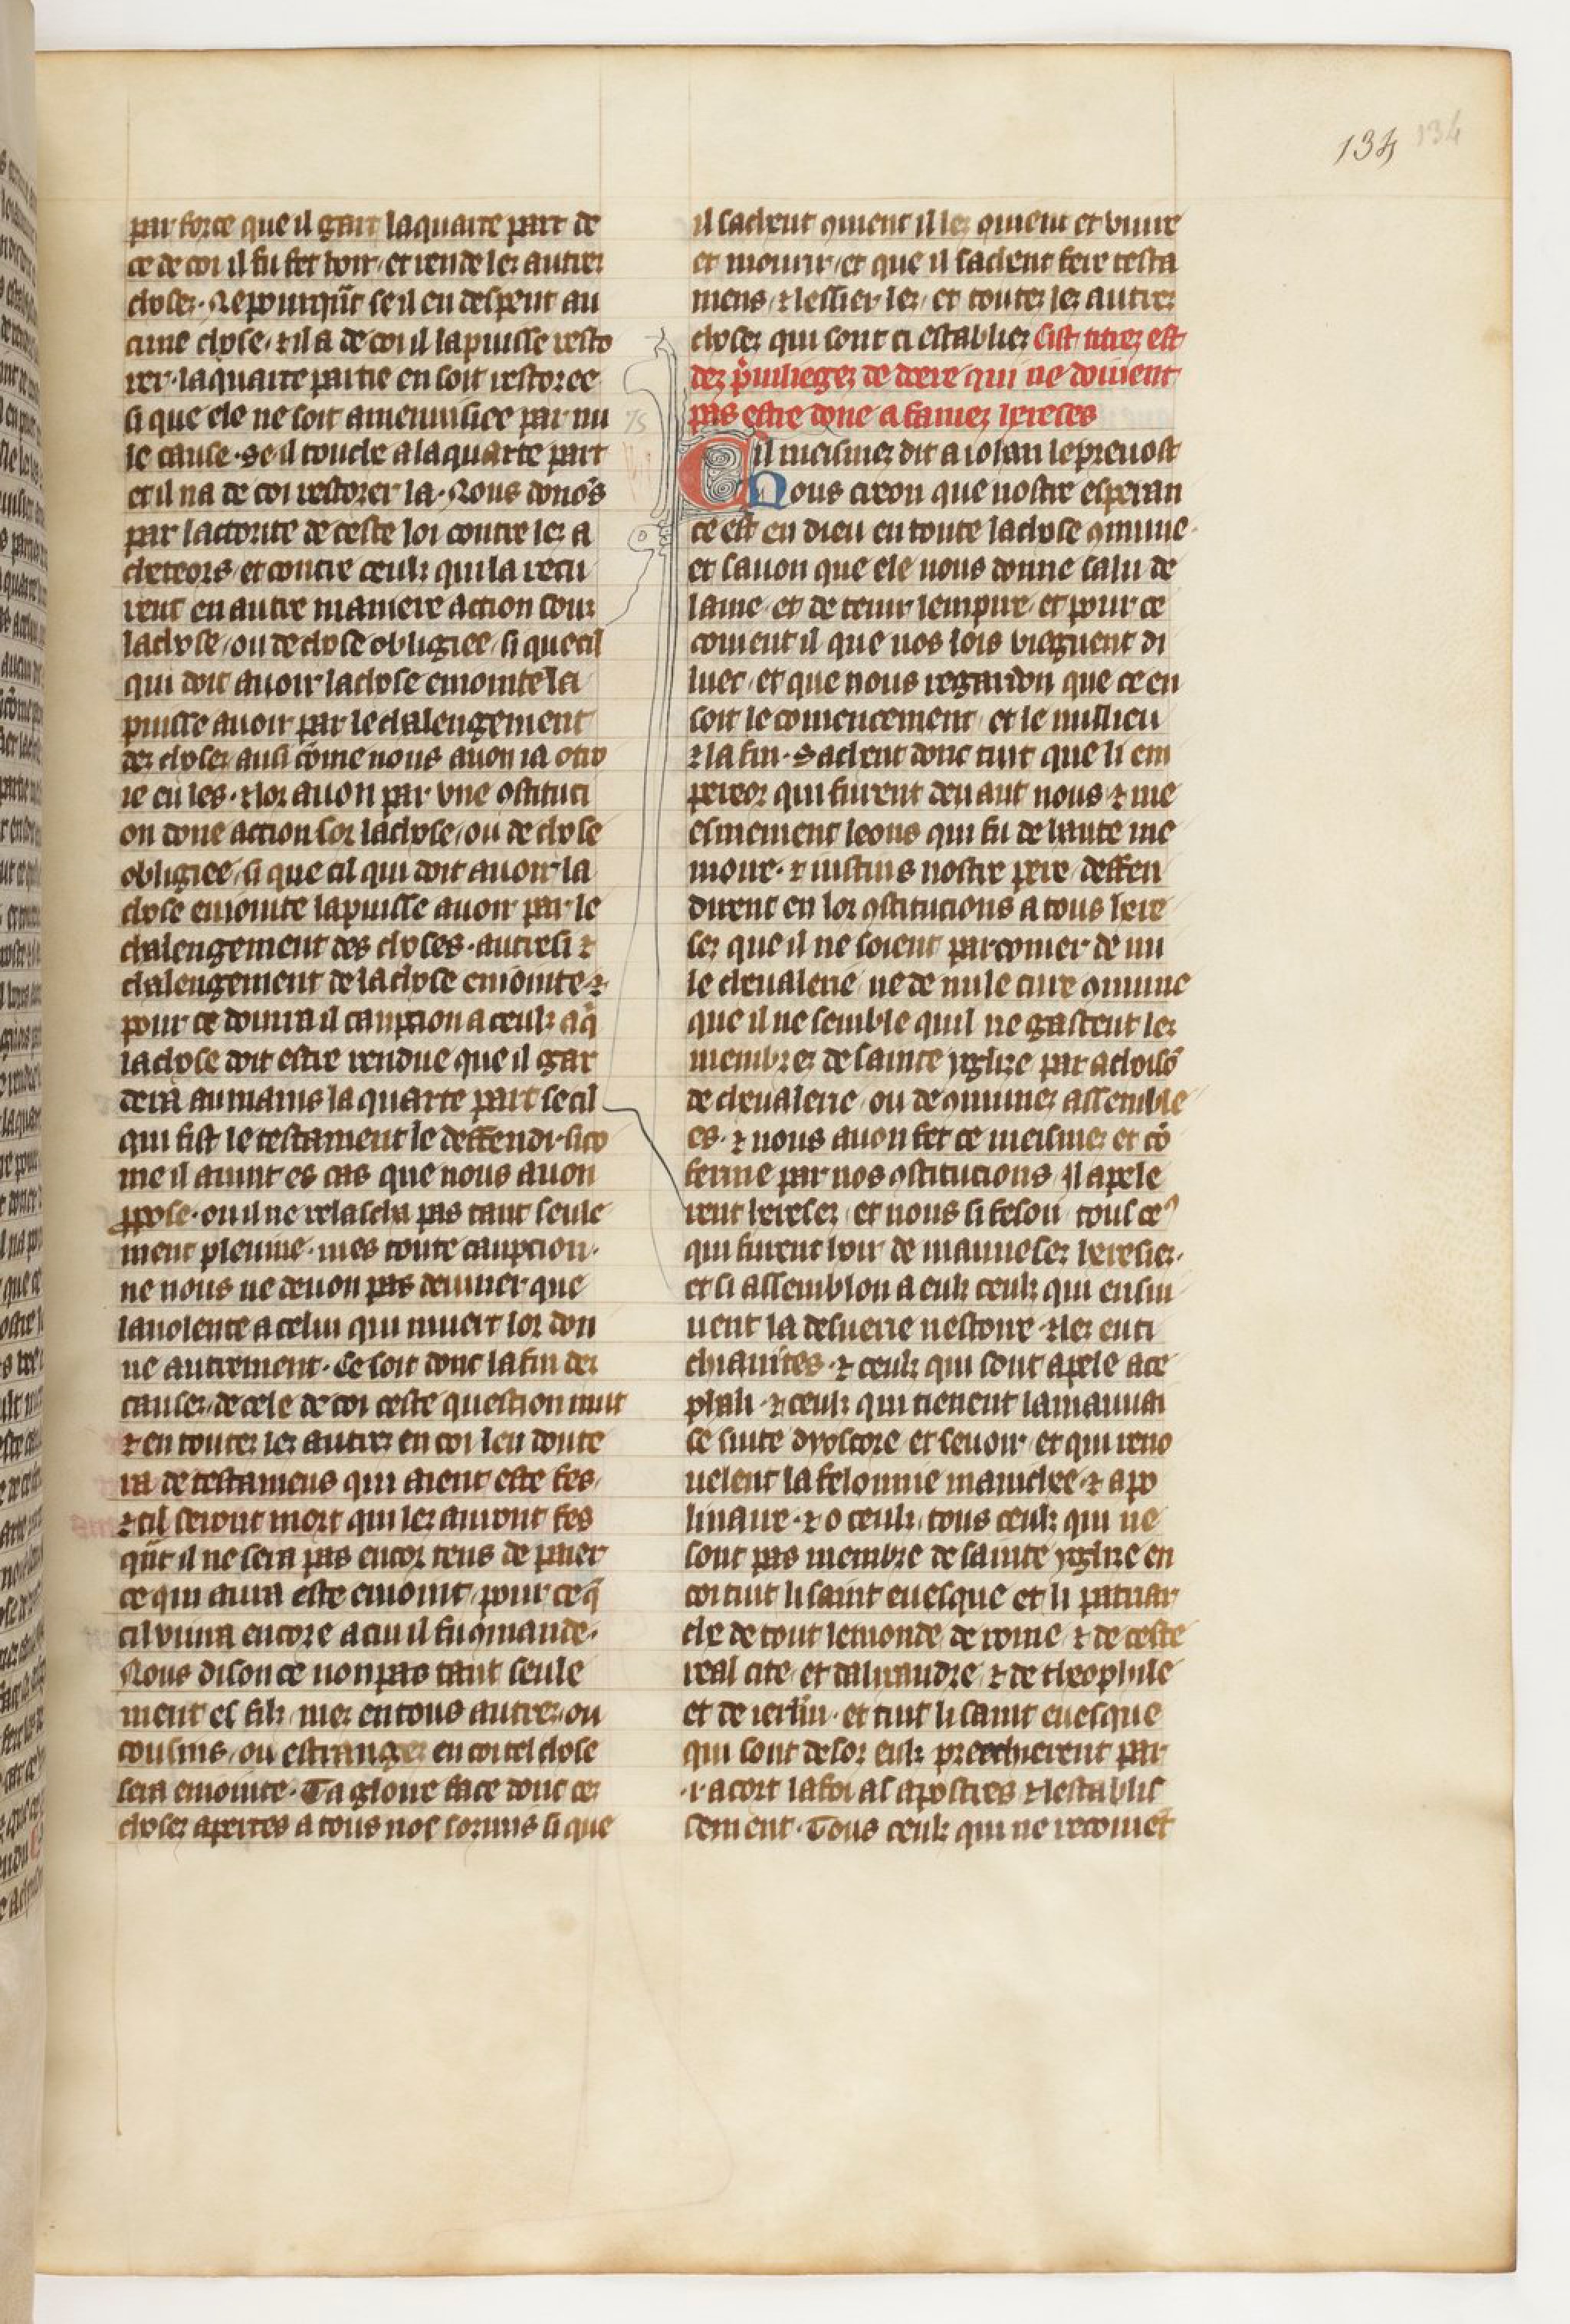 134 134
par force que il gart la quarte part de
ce de coi il fu fet hoir et rende les autres
choses. Nepourqu̅t se il en despent au
cune chose, ⁊ il a de coi il la puisse resto
rer. la quarte partie en soit restoree
si que ele ne soit amenuisiee par nu
le cause. Se il touche a la quarte part
et il na de coi restorer la. Nous dono̅s
par lactorite de ceste loi contre les a
cheteors, et contre ceulz qui la recu
rent en autre maniere action sour
la chose, ou de chose obligiee, si que cil
qui doit auoir la chose emointe la
puisse auoir par le chalengement
des choses ausi co̅me nous auon ia otro
ie en les. ⁊ lor auon par vne ꝯstituci
on done action sor la chose, ou de chose
obligiee, si que cil qui doit auoir la
chose emointe la puisse auoir par le
chalengement des choses. autresi ⁊
chalengement de la chose emointe. ⁊
pour ce donra il caupcion a ceulz a q̅
la chose doit estre rendue que il gar
dera au mains la quarte part se cil
qui fist le testament le deffendi. si co
me il auint es cas que nous auon
ꝓpose. ou il ne relascha pas tant seule
ment pleniue. mes toute caupcion.
ne nous ne deuon pas deuiner que
la uolente a celui qui muert lor don
ne autrement. Ce soit donc la fin des
causes, de cele de coi ceste question mut
⁊ en toutes les autres en coi len doute
ra de testamens qui aient este fes,
⁊ cil seront mort qui les auront fes
qu̅t il ne sera pas encor tens de paier
ce qui aura este emoint, pour ce q̅
cil viura encore a cui il fu ꝯmande.
Nous dison ce non pas tant seule
ment es filz, mes en tous autres, ou
cousins, ou estranges en coi tel chose
sera emointe. Ta gloire face donc ces
choses apertes a tous nos sormis si que
il sachent ꝯment il les ꝯuient et viure
et mourir, et que il sachent fere testa
mens, ⁊ lessier les, et toutes les autres
choses qui sont ci establies Cist titres est
des p̅uilieges de doere qui ne doiuent
pas estre done a fames hereses
75
Cil meismes dit a iohan le preuost
Nous creon que nostre esperan
ce est en dieu en toute la chose ꝯmune.
et sauon que ele nous donne salu de
lame, et de tenir lempire, et pour ce
couient il que nos lois viegnent di
luec, et que nous regardon que ce en
soit le comencement, et le milieu
⁊ la fin. Sachent donc tuit que li em
pereor qui furent deuant nous ⁊ me
esmement leons qui fu de haute me
moire. ⁊ iustins nostre pere, deffen
dirent en lor ꝯstitucions a tous here
ses que il ne soient parconier de nu
le cheualerie, ne de nule cure ꝯmune
que il ne semble quil ne gastent les
membres de sainte yglize par achoiso̅
de cheualerie, ou de ꝯmunes assemble
es. ⁊ nous auon fet ce meismes et co̅
ferme par nos ꝯstitucions, Il apele
rent hereses, et nous si feson, tous ce
qui furent hoir de mauueses heresies.
et si assemblon a eulz ceulz qui ensiu
uent la desuerie nestoire. ⁊ les euti
chianites. ⁊ ceulz qui sont apele ace
phali. ⁊ ceulz qui tienent la mauuai
se suite dyoscore et seuoir, et qui reno
uelent la felonnie manichee. ⁊ apo
linaire. ⁊ o ceulz, tous ceulz qui ne
sont pas membre de sainte yglize en
coi tuit li saint euesque et li patriar
che de tout le monde, de rome, ⁊ de ceste
real cite, et dalixandre, ⁊ de theophile
et de ierl̅m. et tuit li saint euesque
qui sont desoz eulz preechierent par
.i. acort la foi as apostres ⁊ lestablis
sement. Tous ceulz qui ne recoiuet